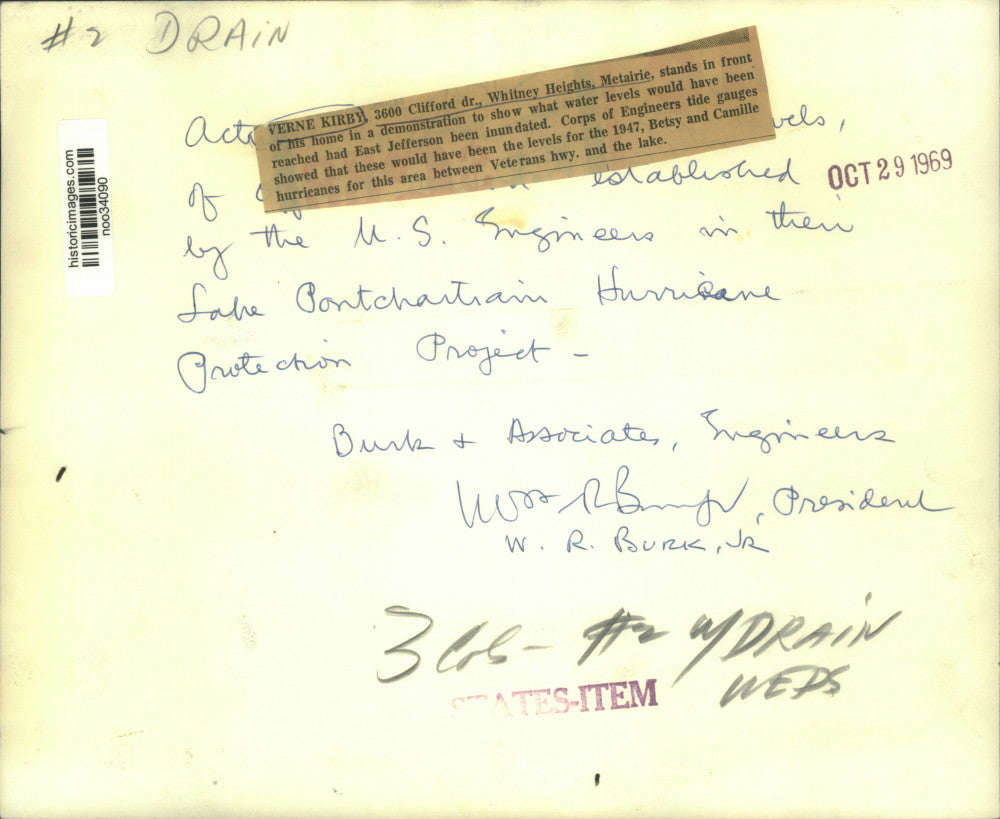 #2 DRAIN
historicimages.com
noo34090
VERNE KIRBY, 3600 Clifford dr., Whitney Heights, Metairie, stands in front
of his home in a demonstration to show what water levels would have been
reached had East Jefferson been inundated. Corps of Engineers tide gauges
showed that these would have been the levels for the 1947, Betsy and Camille
hurricanes for this area between Veterans hwy. and the lake.
OCT 29 1969
of established
by the U.S. Engineers in their
Lake Pontchartrain Hurricane
Protection Project -
Burk + Associates, Engineers
, President
W. R. BURK, JR
3 Cols - #2 w/DRAIN
WEDS
STATES-ITEM